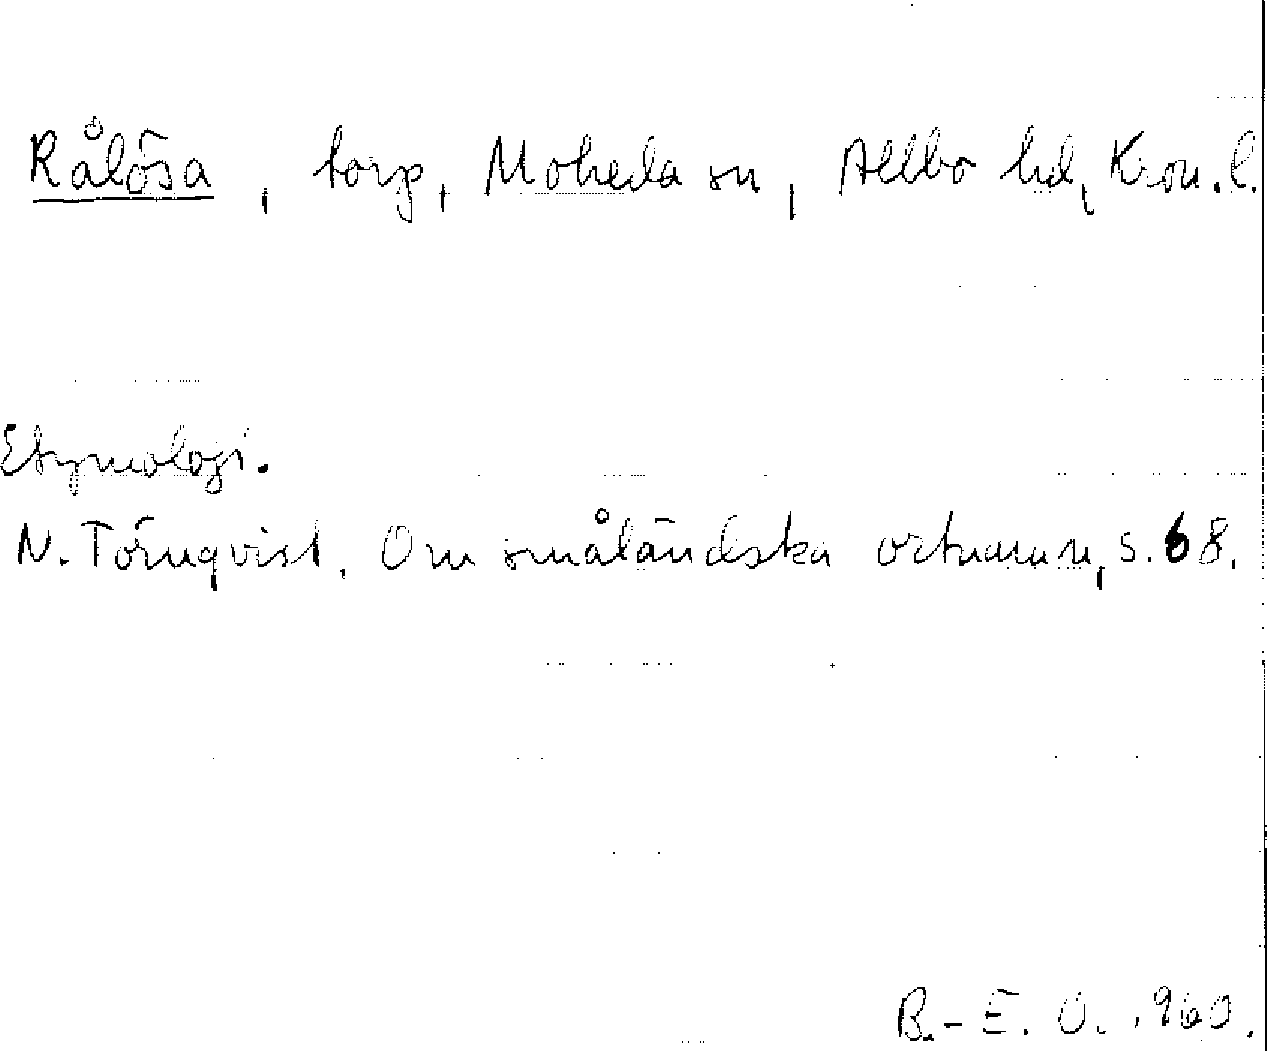 Rålösa, torp, Moheda sn, Allbo hd, Kron. l.
Etymologi.
N. Törnqvist, Om småländska ortnamn, s. 68.
B.-E. O. 1960.